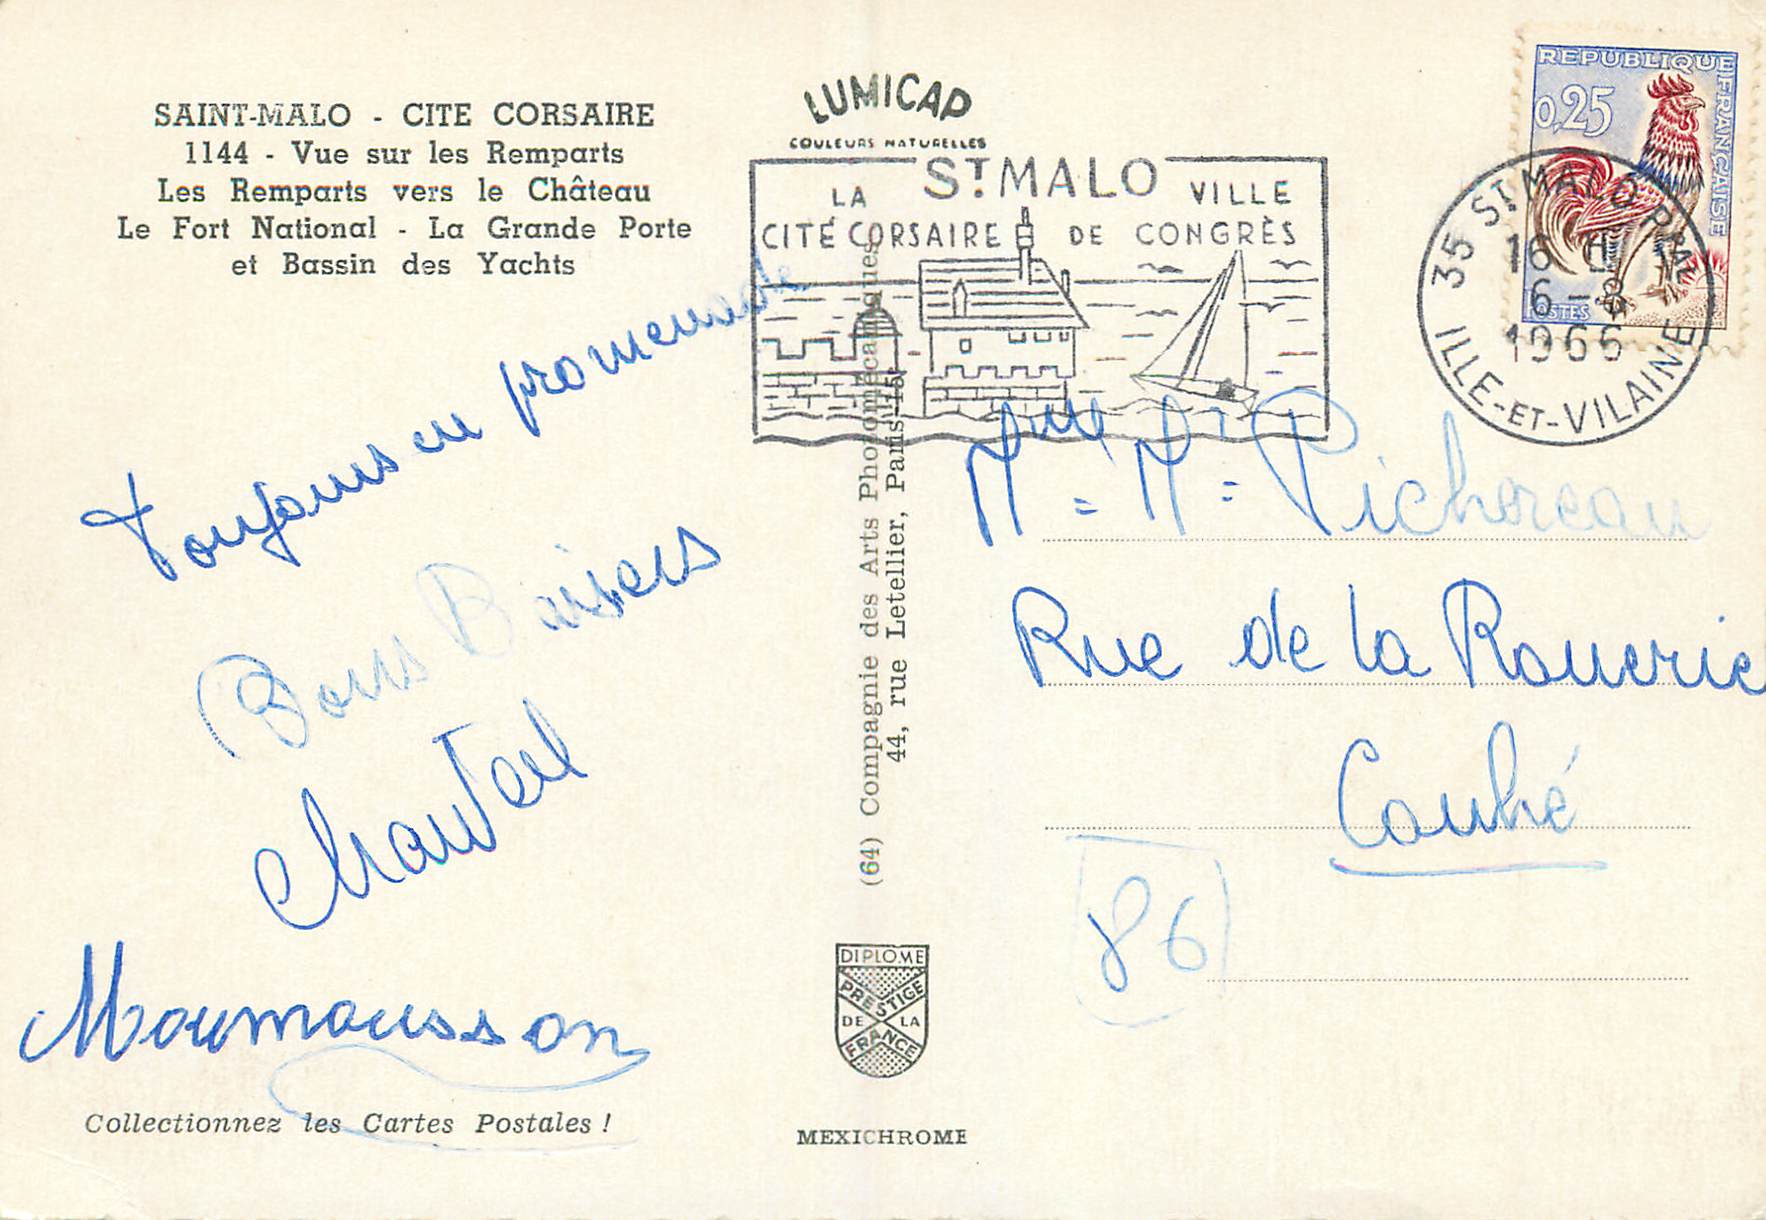 SAINT-MALO - CITE CORSAIRE
1144 - Vue sur les Remparts
Les Remparts vers le Château
Le Fort National - La Grande Porte
et Bassin des Yachts
Toujours en promenade
Bons Baisers
Chantal
Moumousson
Collectionnez les Cartes Postales !
LUMICAP
COULEURS NATURELLES
ST MALO
LA VILLE
CITÉ CORSAIRE DE CONGRÈS
(64) Compagnie des Arts Photomécaniques
44, rue Letellier, Paris-15e
DIPLOME
PRESTIGE
DE LA
FRANCE
MEXICHROME
REPUBLIQUE FRANÇAISE
0,25
POSTES
35 ST MALO PPAL
16 H
6 - 8
1966
ILLE-ET-VILAINE
Pichereau
Rue de la Rouerie
Couhé
86